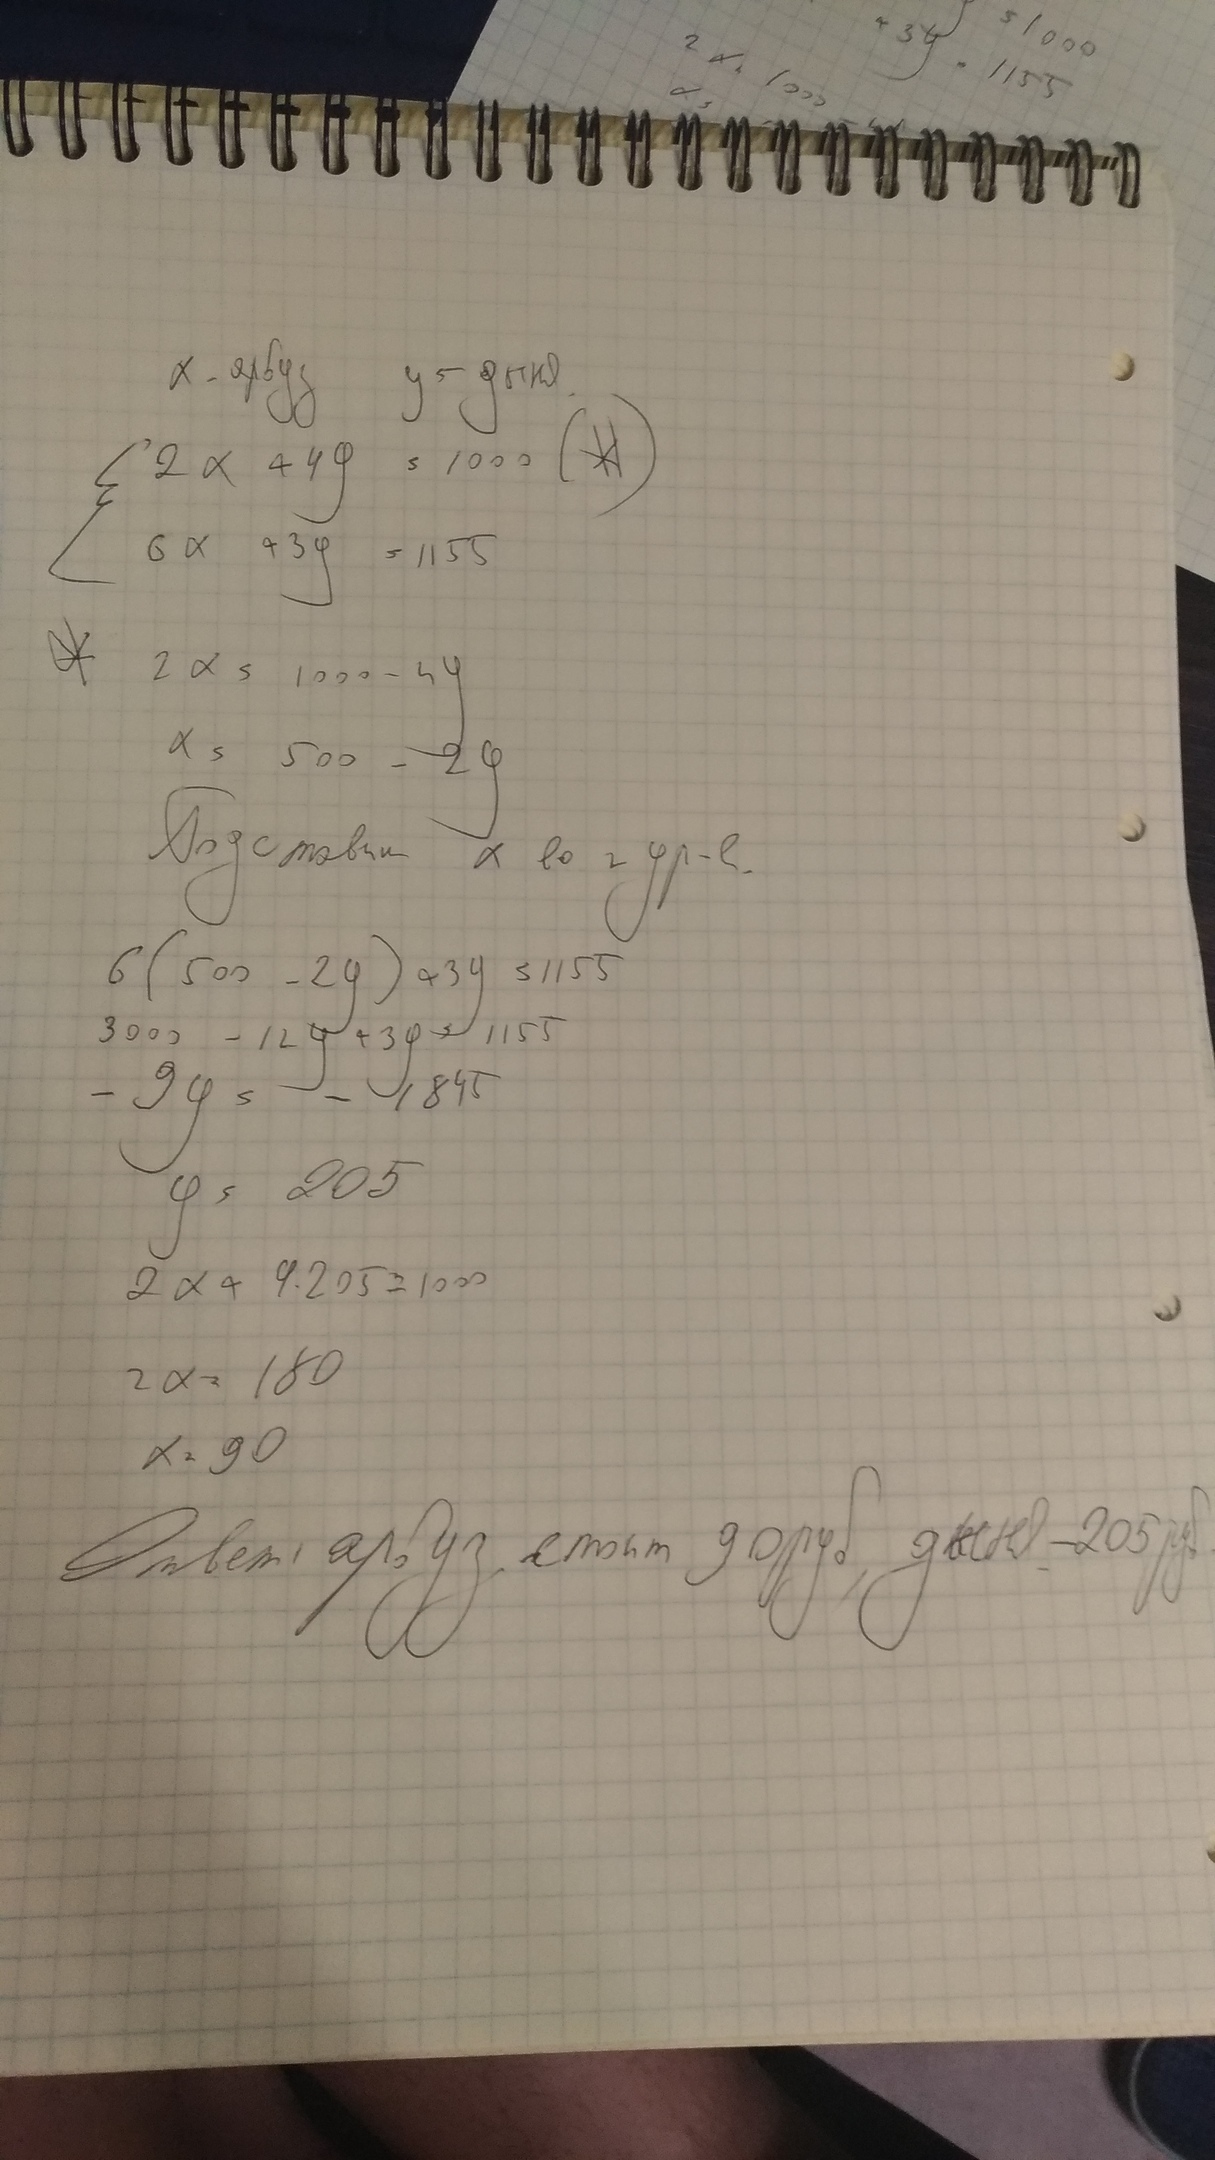 +3y = 1000
= 1155
2x = 1000
x =
x - арбуз y = дыня.
2x + 4y = 1000 (*)
6x + 3y = 1155
* 2x = 1000 - 4y
x = 500 - 2y
Подставим x во 2 ур-е.
6(500 - 2y) + 3y = 1155
3000 - 12y + 3y = 1155
- 9y = - 1845
y = 205
2x + 4·205 = 1000
2x = 180
x = 90
Ответ: арбуз стоит 90 руб, дыня - 205 руб.